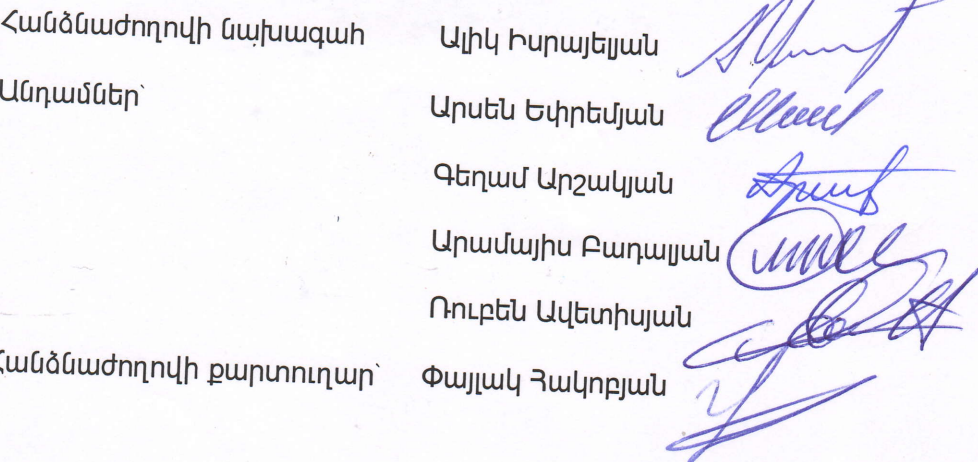 Հանձնաժողովի նախագահ Ալիկ Իսրայելյան
Անդամներ՝ Արսեն Եփրեմյան
Գեղամ Արշակյան
Արամայիս Բադալյան
Ռուբեն Ավետիսյան
Հանձնաժողովի քարտուղար՝ Փայլակ Հակոբյան